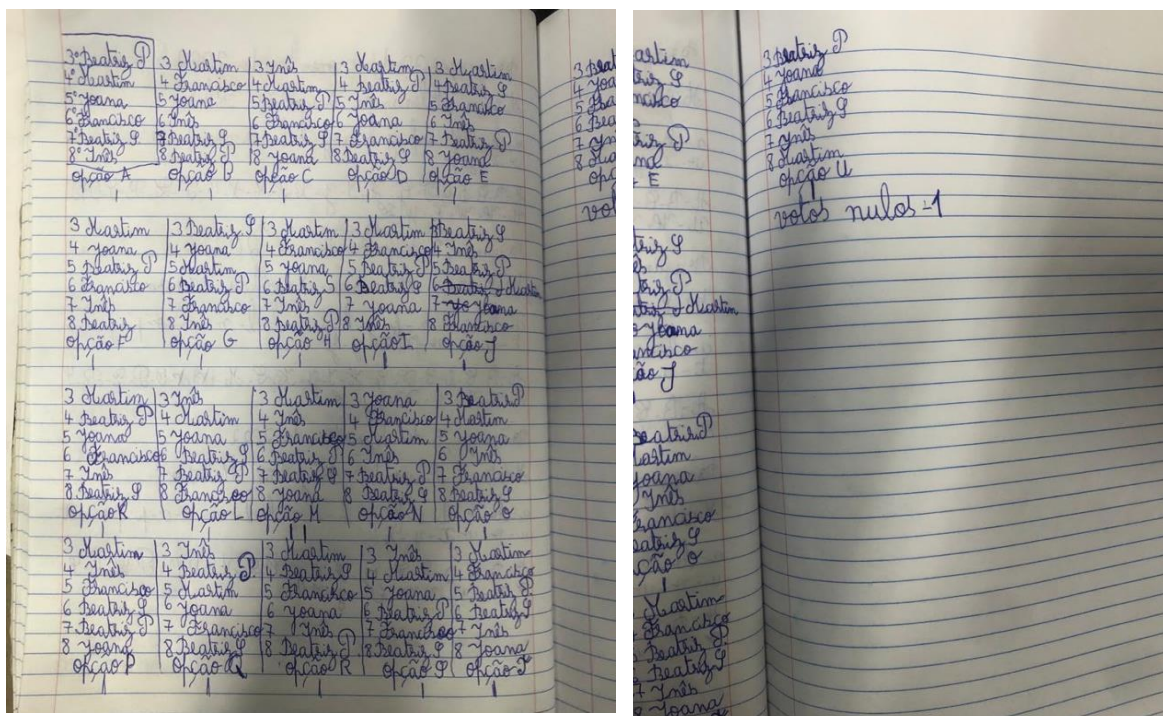 3º Beatriz P
4º Martim
5º Joana
6º Francisco
7º Beatriz S
8º Inês
Opção A
3 Martim
4 Francisco
5 Joana
6 Inês
7 Beatriz S
8 Beatriz P
Opção B
3 Inês
4 Martim
5 Beatriz P
6 Francisco
7 Beatriz S
8 Joana
Opção C
3 Martim
4 Beatriz P
5 Inês
6 Joana
7 Francisco
8 Beatriz S
Opção D
3 Martim
4 Beatriz S
5 Francisco
6 Inês
7 Beatriz P
8 Joana
Opção E
3 Martim
4 Joana
5 Beatriz P
6 Francisco
7 Inês
8 Beatriz
Opção F
3 Beatriz S
4 Joana
5 Martim
6 Beatriz P
7 Francisco
8 Inês
Opção G
3 Martim
4 Francisco
5 Joana
6 Beatriz S
7 Inês
8 Beatriz P
Opção H
3 Martim
4 Francisco
5 Beatriz P
6 Beatriz S
7 Joana
8 Inês
Opção I
3 Beatriz S
4 Inês
5 Beatriz P
6 Martim
7 Joana
8 Francisco
Opção J
3 Martim
4 Beatriz P
5 Joana
6 Francisco
7 Inês
8 Beatriz S
Opção K
3 Inês
4 Martim
5 Joana
6 Beatriz S
7 Beatriz P
8 Francisco
Opção L
3 Martim
4 Inês
5 Francisco
6 Beatriz P
7 Beatriz S
8 Joana
Opção M
3 Joana
4 Francisco
5 Martim
6 Inês
7 Beatriz P
8 Beatriz S
Opção N
3 Beatriz P
4 Martim
5 Joana
6 Inês
7 Francisco
8 Beatriz S
Opção O
3 Martim
4 Inês
5 Francisco
6 Beatriz S
7 Beatriz P
8 Joana
Opção P
3 Inês
4 Beatriz P
5 Martim
6 Joana
7 Francisco
8 Beatriz S
Opção Q
3 Martim
4 Beatriz S
5 Francisco
6 Joana
7 Inês
8 Beatriz P
Opção R
3 Inês
4 Martim
5 Joana
6 Beatriz P
7 Francisco
8 Beatriz S
Opção S
3 Martim
4 Francisco
5 Beatriz P
6 Beatriz S
7 Inês
8 Joana
Opção T
3 Beatriz P
4 Joana
5 Francisco
6 Beatriz S
7 Inês
8 Martim
Opção U
votos nulos = 1